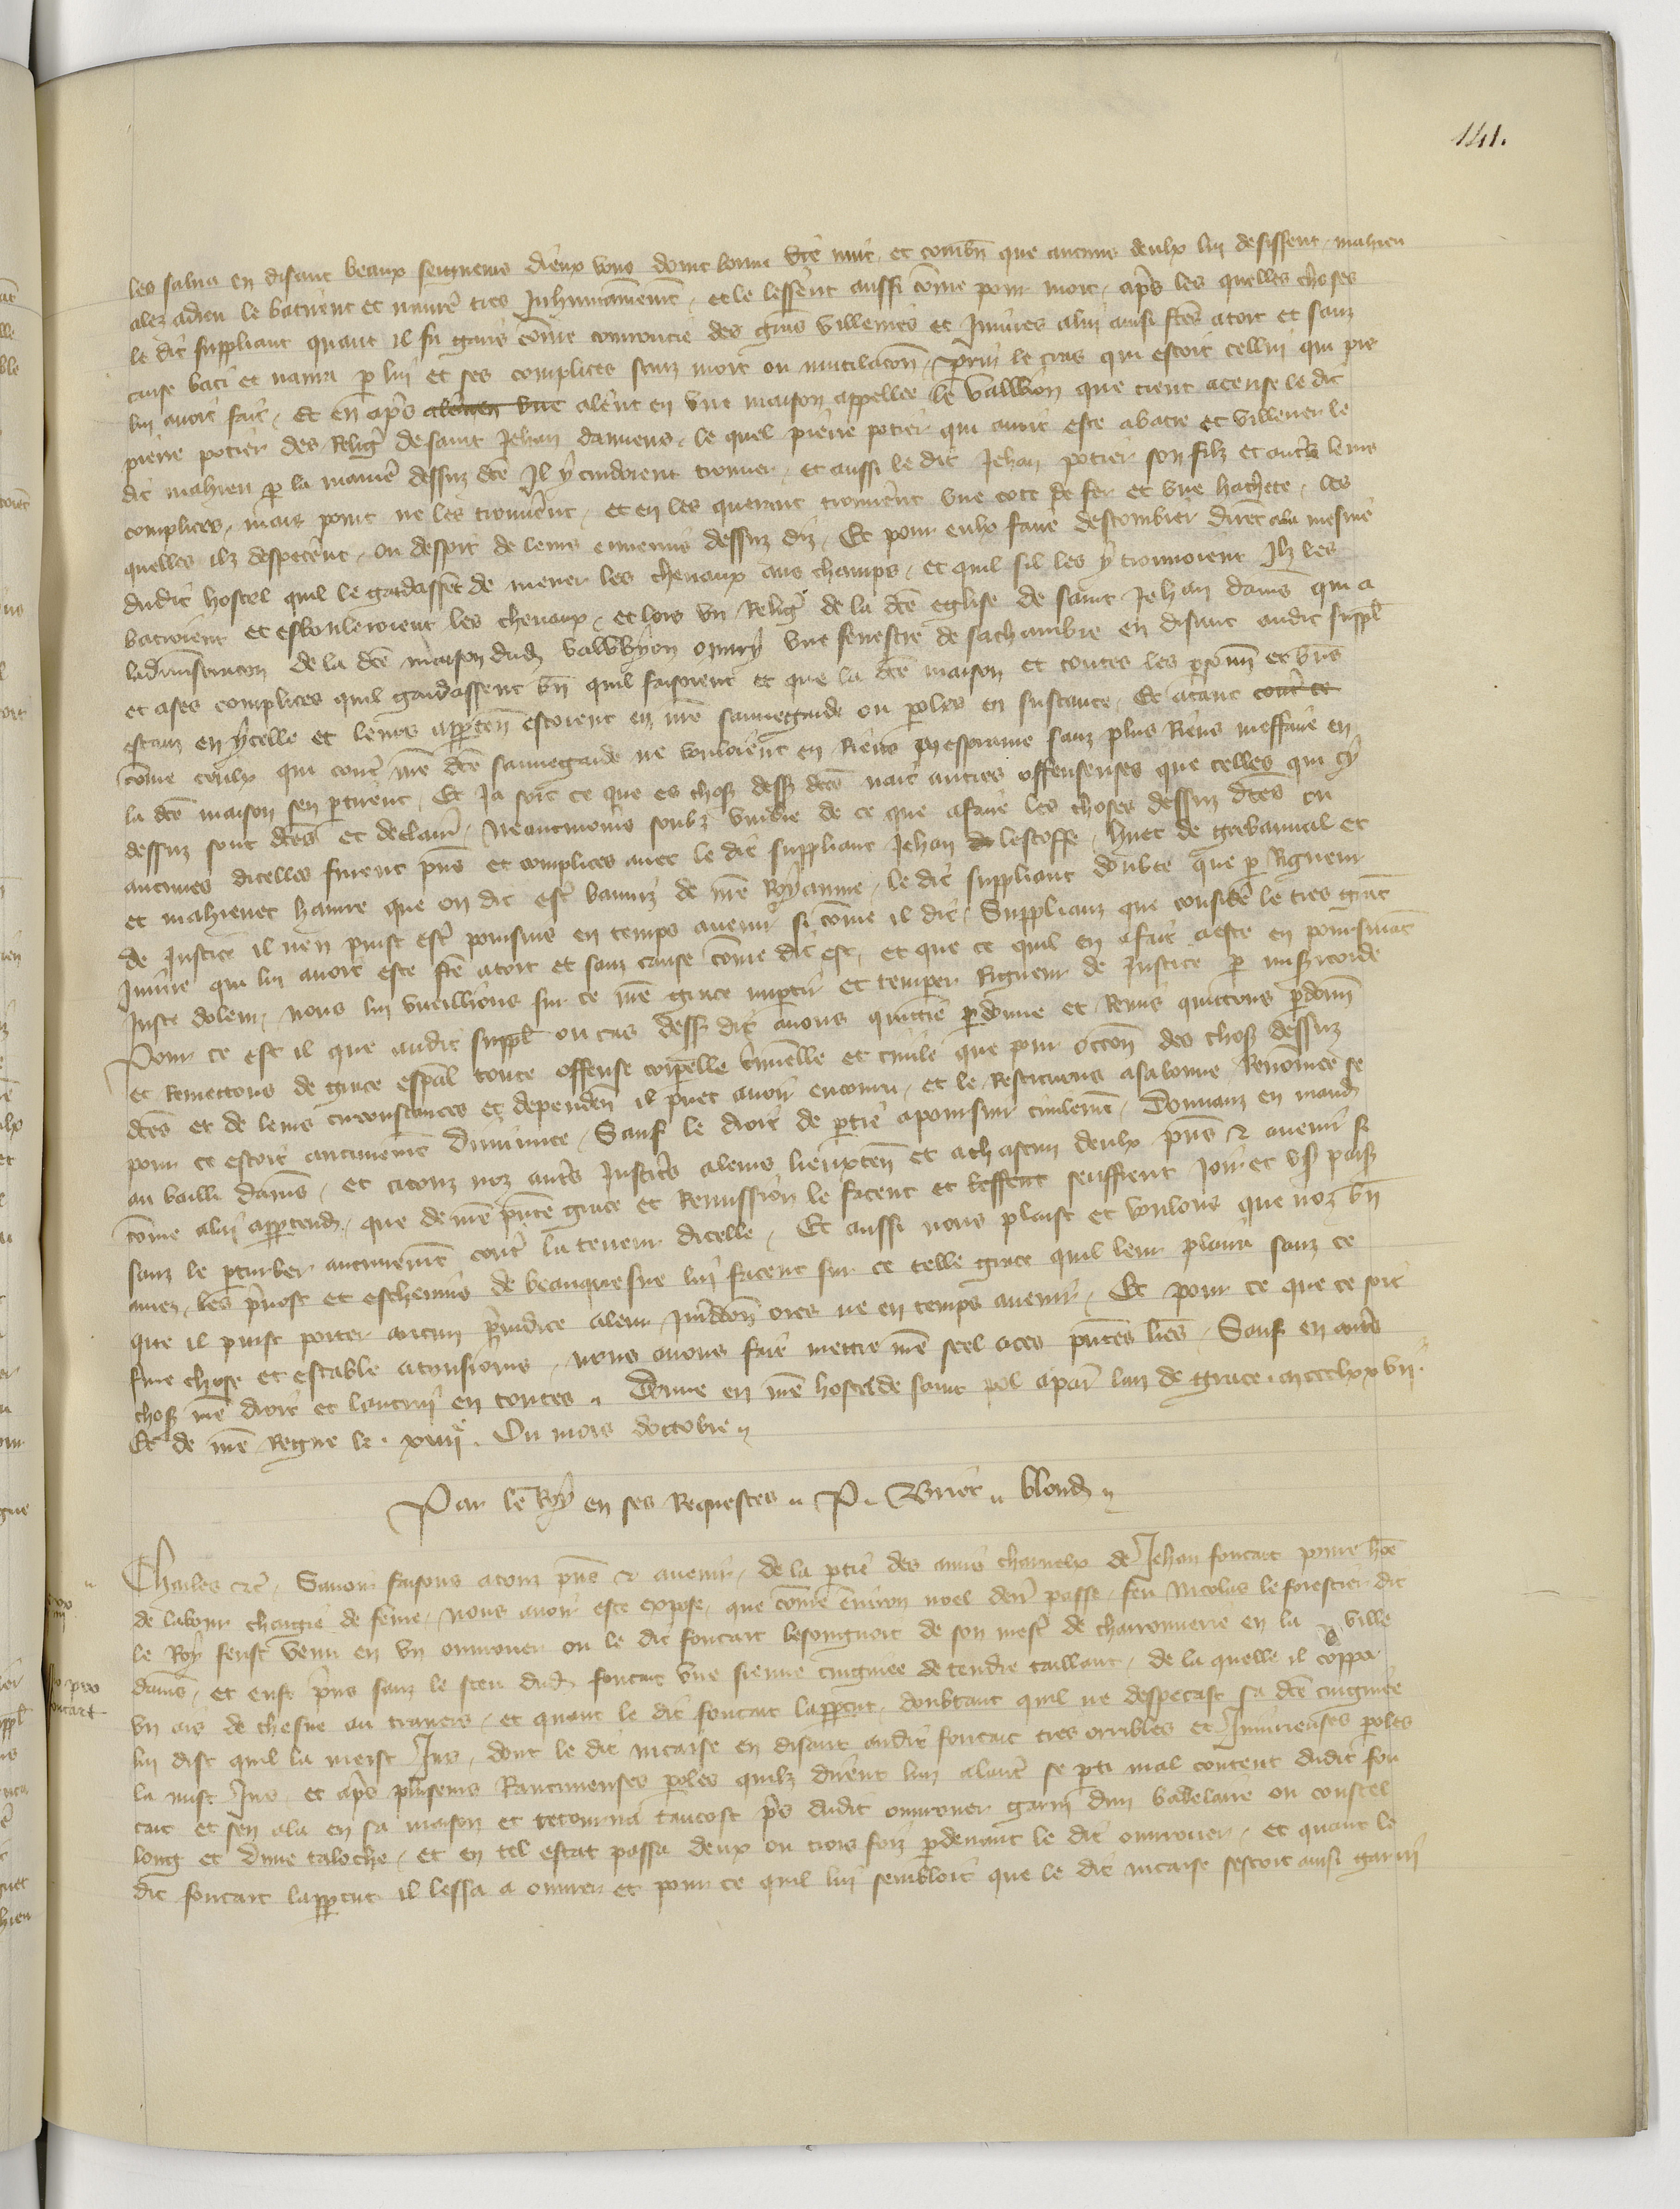 141.
les salua en disant beaux seigneurs dieux vous doint bonne vre nuit et combn que aucuns deulx lui deissent mahieu
alez adieu le batirent et navrer tres Inhumainement, et le lessent aussi come pour mort, aps les quelles choses
le dit suppliant quant il fu gari come courroucie des gns villenies et Iniures a lui ainsi ftes a tort et sanz
cause bati et navra p lui et ses complices sanz mort ou mutilacon, le qui estoit cellui qui pis
lui avoit fait, Et en aps alerent en vne maison appellee le que tient a cense le dit
pierre potier des Relig de saint Jehan damiens, le quel pierre potier qui avoit este a batre et villener le
dit mahieu p la maniere dessuz dce Il y cuidoient trouver, et aussi le dit Jehan potier son filz et autrs leurs
complices, mais point ne les trouverent, et en les querant trouverent vne cote de fer et vne hachete, les
quelles ilz despecerent, ou despit de leurs ennemis dessuz diz, Et pour eulx faire destourbier dirent a la mesnie
dudit hostel quil se gardassent de mener les chevaux aus champs, et quil sil les y trouvoient Ilz les
batroient et esbouleroient les chevaux, et lors vn Relig de la dce eglise de saint Jehan damiens qui a
ladministracon de la dce maison dud ouvry vne fenestre de sa chambre en disant audit suppl
et a ses complices quil gardassent bn quil faisoient et que la dce maison et toutes les psonn et biens
estanz en ycelle et leurs apptenn estoient en nre sauvegarde ou poles en sustance, Et atant
come ceulx qui contre nre dce sauvegarde ne vouloient en Riens sanz plus Riens meffaire en
la dce maison sen ptirent, Et Ja soit ce que es choses dess dces nait autres offensenses que celles qui cy
dessuz sont dces et declairees, neantmoins soubz vmbre de ce que a faire les choses dessuz dces ou
aucunes dicelles furent pns et complices avec le dit suppliant Jehan de lestoffe, huet de grebaumal et
et mahieuet hanre que on dit estre banniz de nre Royaume, le dit suppliant doubte que p Rigueur
de Justice il nen puist estre poursuis en temps avenir si come il dit, Suppliant que consider le tres grant
Iniure qui lui avoit este fte a tort et sanz cause come dit est, et que ce quil en a fait a este en poursuiant
Juste dolour, nous lui vueillions sur ce nre grace impartir et temprer Rigueur de Justice p misericorde
Pour ce est il que audit suppl ou cas dess dit avons quittie pdonne et Remis quittons pdonn
et Remettons de grace espal toute offense corpelle criminelle et civile que pour occon des choses dessuz
dces et de leurs circonstances et dependen il puet avoir encouru, et le Restituons a sa bonne Renomee se
pour ce estoit aucunement diminuee, Sauf le droit de ptie a poursuir civilement, Donnanz en mand
au bailli damiens, et a touz noz autrs Justiciers a leurs lieuxten et a chascun deulx pns et avenir si
come a lui apptendra, que de nre pnte grace et Remission le facent et seuffrent Joir et vser paisiblement
sanz le pturber aucunement contre la teneur dicelle, Et aussi nous plaist et voulons que noz bn
amez les pvost et eschevins de beauquesne lui facent sur ce telle grace quil leur plaira sanz ce
que il puist porter aucun pjudice a leur Juridicon ores ne en temps avenir, Et pour ce que ce soit
ferme chose et estable a tousiours, nous avons fait mettre nre seel a ces pntes lres, Sauf en autrs
choses nre droit et lautrui en toutes, Donne en nre hostel de saint pol a paris lan de grace mccclxxvii
Et de nre Regne le xiiii. Ou mois doctobre
Par le Roy en ses Requestes P. Briet blond
Charles etc, Savoir faisons a touz pns et avenir, de la ptie des amis charnelx de Jehan foucart povre home
de labour chargie de feme, nous avoir este expose, que come environ noel dern passe, feu Nicolas le forestier dit
le Roy feust venu en vn ouvrouer ou le dit foucart besoingnoit de son mestier de charronnerie en la ville
damiens, et eust pris sanz le sceu dud foucart vne sienne cuignee de tendre taillant, de la quelle il coppa
vn ais de chesne au travers, et quant le dit foucart lappcut, doubtant quil ne despecast sa dce cuignee
lui dist quil la meist Jus, dont le dit nicaise en disant audit foucart tres orribles et Iniurieuses poles
la mist Jus et aps pluseurs Rancuneuses poles quilz dirent lun a lautre se pti mal content dudit fou
cart et sen ala en sa maison et retourna tantost pres dudit ouvrouer garni dun badelaire ou coustel
long et dune taloche, et en tel estat passa deux ou trois foiz pdevant le dit ouvrouer, et quant le
dit foucart lappcut il lessa a ouvrer et pour ce quil lui sembloit que le dit nicaise sestoit ainsi garni